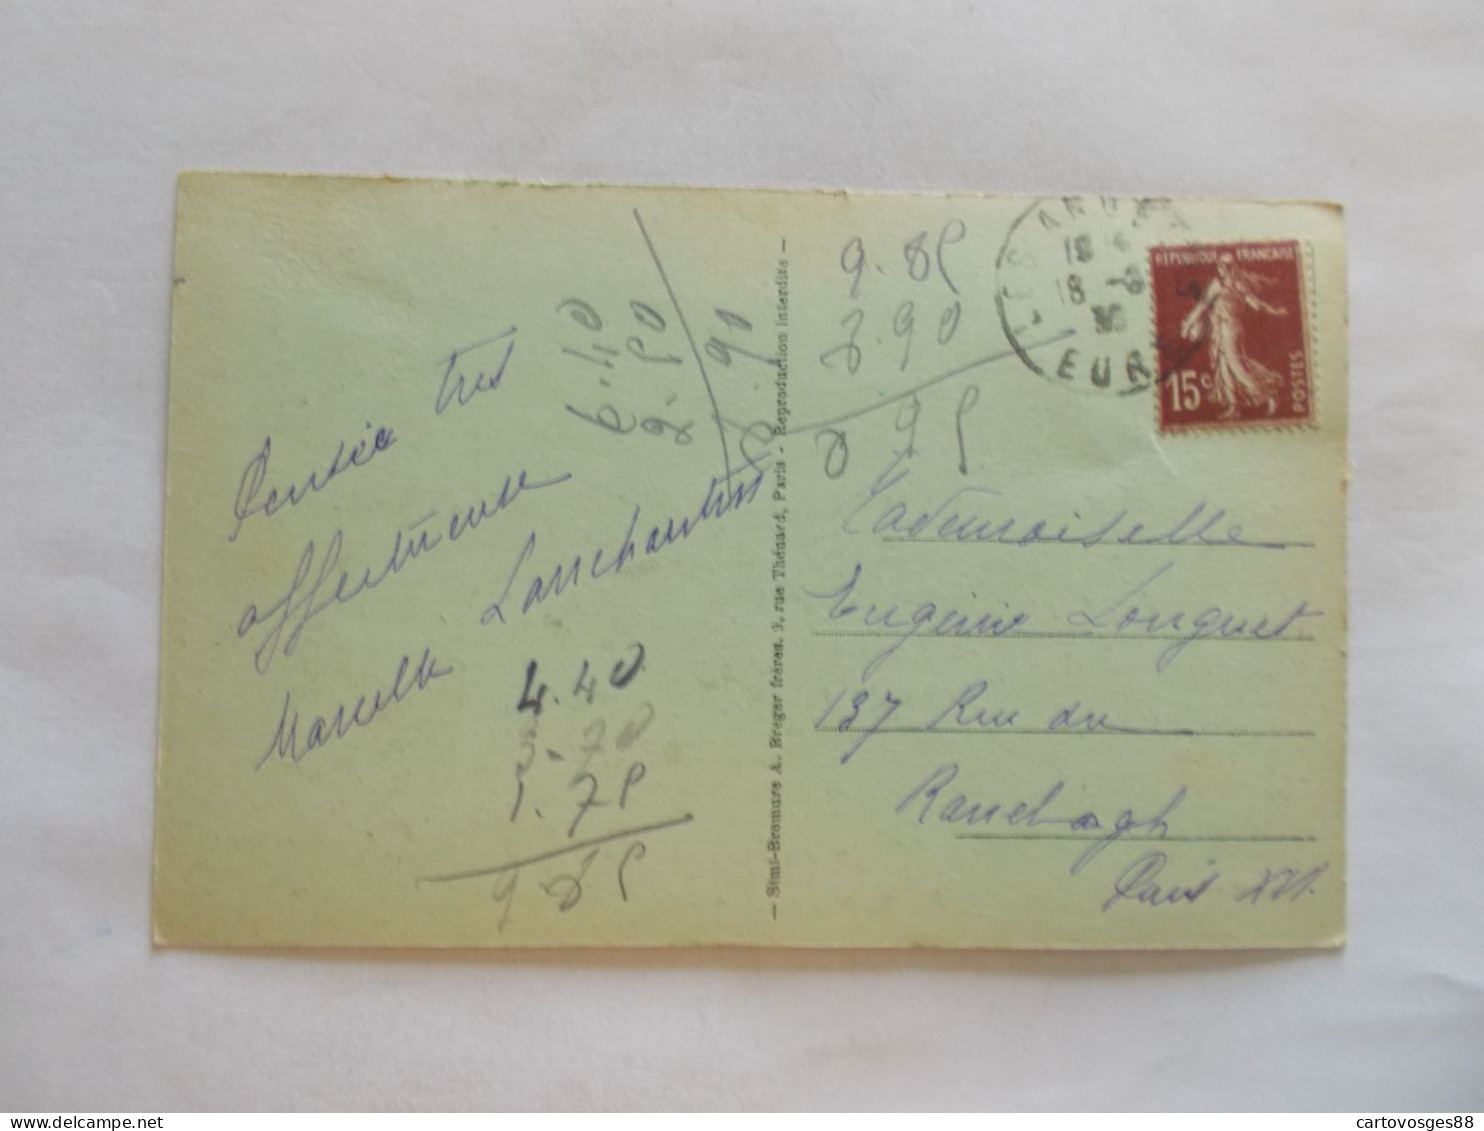 Pensée très
affectueuse
Marcelle Lanchantin
6.40
2.50
8.90
4.40
3.70
1.75
9 85
— Simi-Bromure A. Breger frères, 9, rue Thénard, Paris - Reproduction interdite —
9.85
8.90
0 95
LES AND
18
EURE
RÉPUBLIQUE FRANÇAISE
15c
POSTES
Mademoiselle
Eugénie Longuet
137 Rue du
Ranelagh
Paris XVI.
cartovosges88